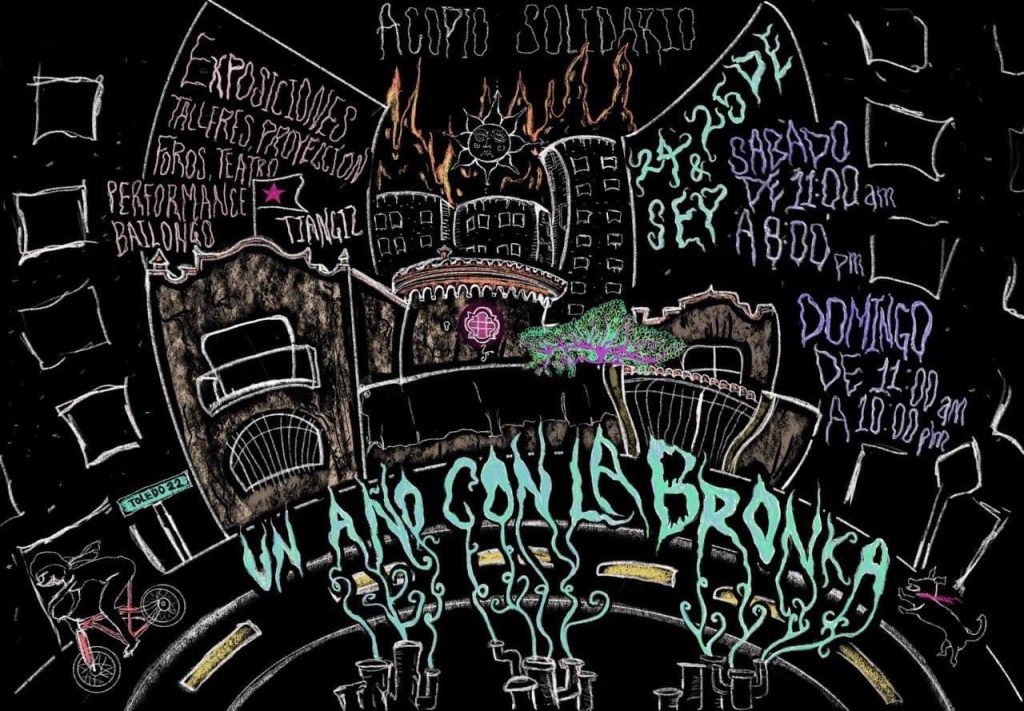 ACOPIO SOLIDARIO
EXPOSICIONES
TALLERES, PROYECCION
FOROS, TEATRO
PERFORMANCE
BAILONGO
TIANGIZ
24 & 25 DE
SEP
SABADO
DE 11:00 am
A 8:00 pm
DOMINGO
DE 11:00 am
A 10:00 pm
TOLEDO 22
UN AÑO CON LA BRONKA